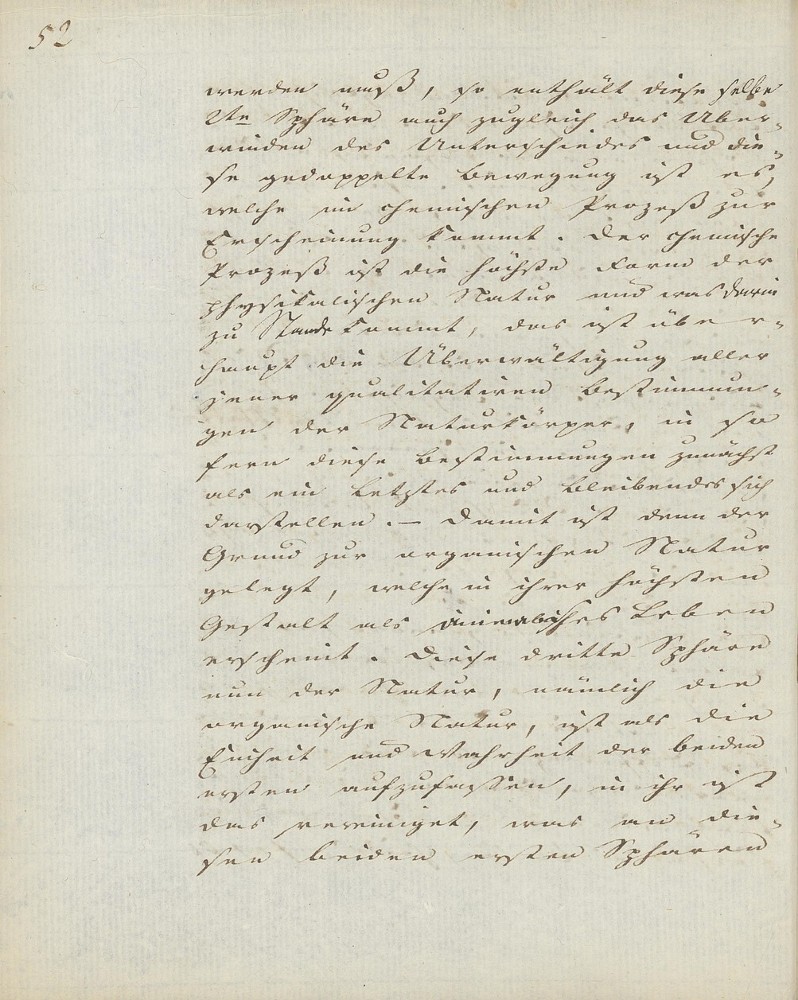 52
werden muß, so enthält diese selbe
2te Sphäre auch zugleich das Über-
winden des Unterschiedes und die-
se gedoppelte Bewegung ist es,
welche im chemischen Prozeß zur
Erscheinung kommt. Der chemische
Prozeß ist die höchste Form der
physikalischen Natur und was darin
zu Stande kommt, das ist über-
haupt die Überwältigung aller
jener qualitativen Bestimmun-
gen der Naturkörper, in so
fern diese Bestimmungen zunächst
als ein Letztes und Bleibendes sich
darstellen. – Damit ist denn der
Grund zur organischen Natur
gelegt, welche in ihrer höchsten
Gestalt als animalisches Leben
erscheint. Diese dritte Sphäre
nun der Natur, nämlich die
organische Natur, ist als die
Einheit und Wahrheit der beiden
ersten aufzufassen, in ihr ist
das vereiniget, was an die-
sen beiden ersten Sphären